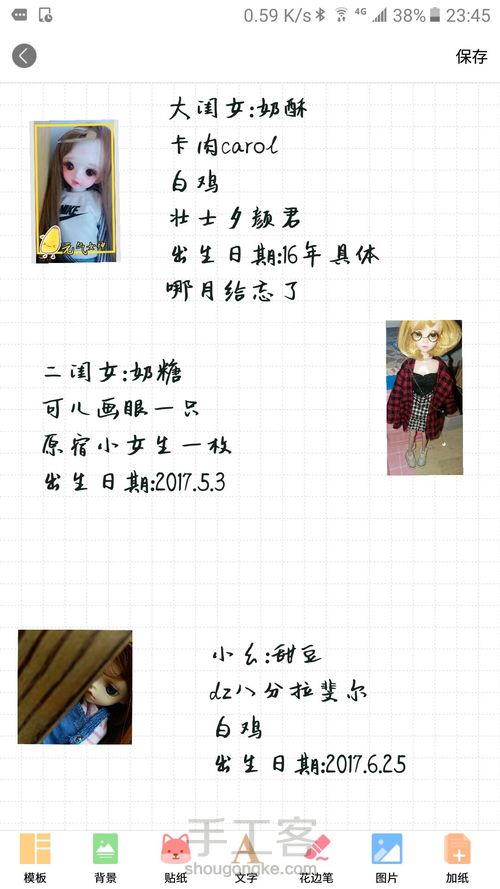 0.59 K/s 4G 38% 23:45
保存
大闺女:奶酥
卡肉carol
白鸡
壮士夕颜君
出生日期:16年具体
哪月给忘了
NIKE
元气女神
二闺女:奶糖
可儿画眼一只
原宿小女生一枚
出生日期:2017.5.3
小幺:甜豆
dz八分拉斐尔
白鸡
出生日期:2017.6.25
手工客
shougongke.com
模板 背景 贴纸 文字 花边笔 图片 加纸